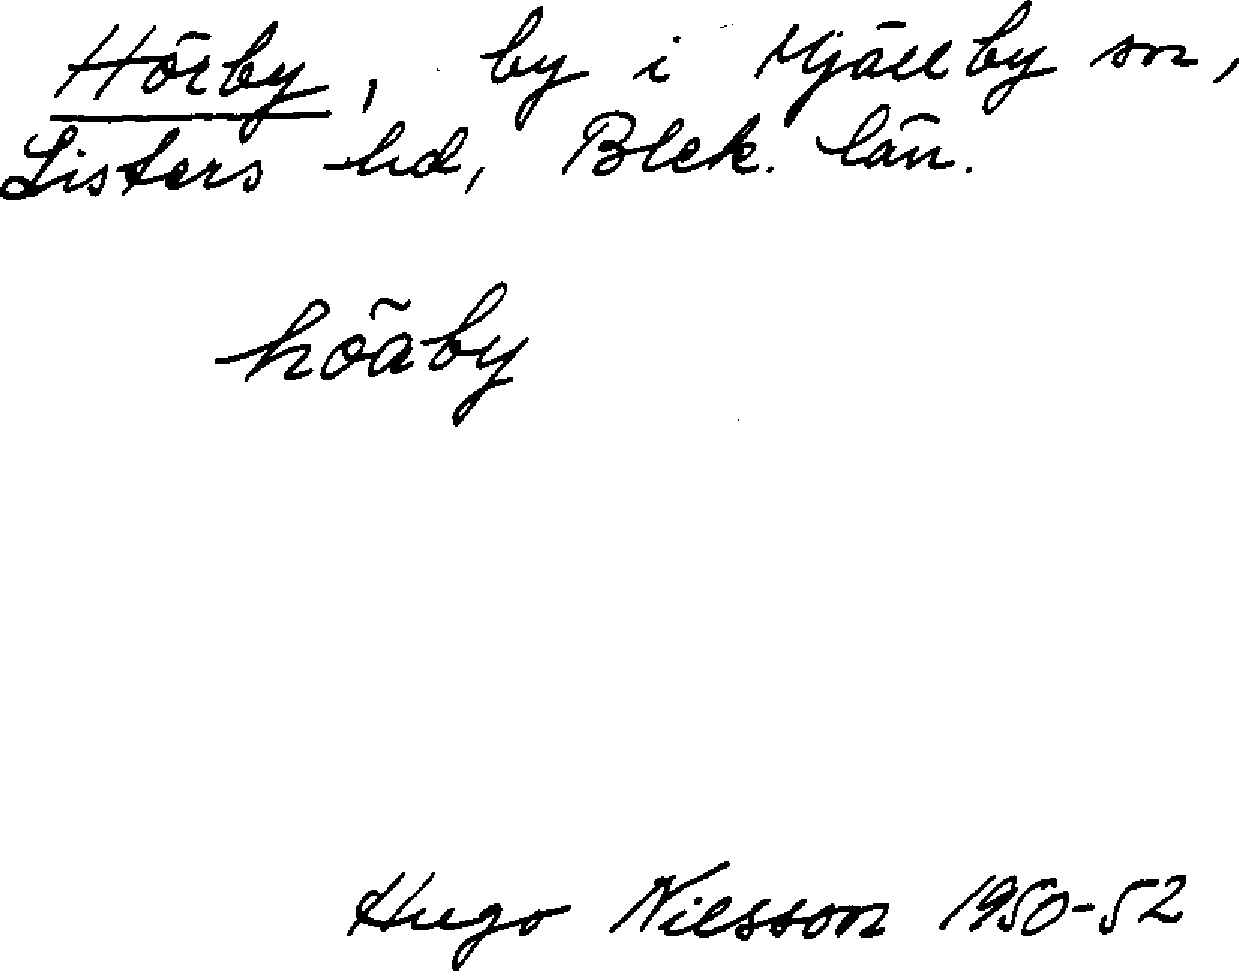 Hörby, by i Mjällby sn,
Listers hd, Blek. län.
höaby
Hugo Nilsson 1950-52